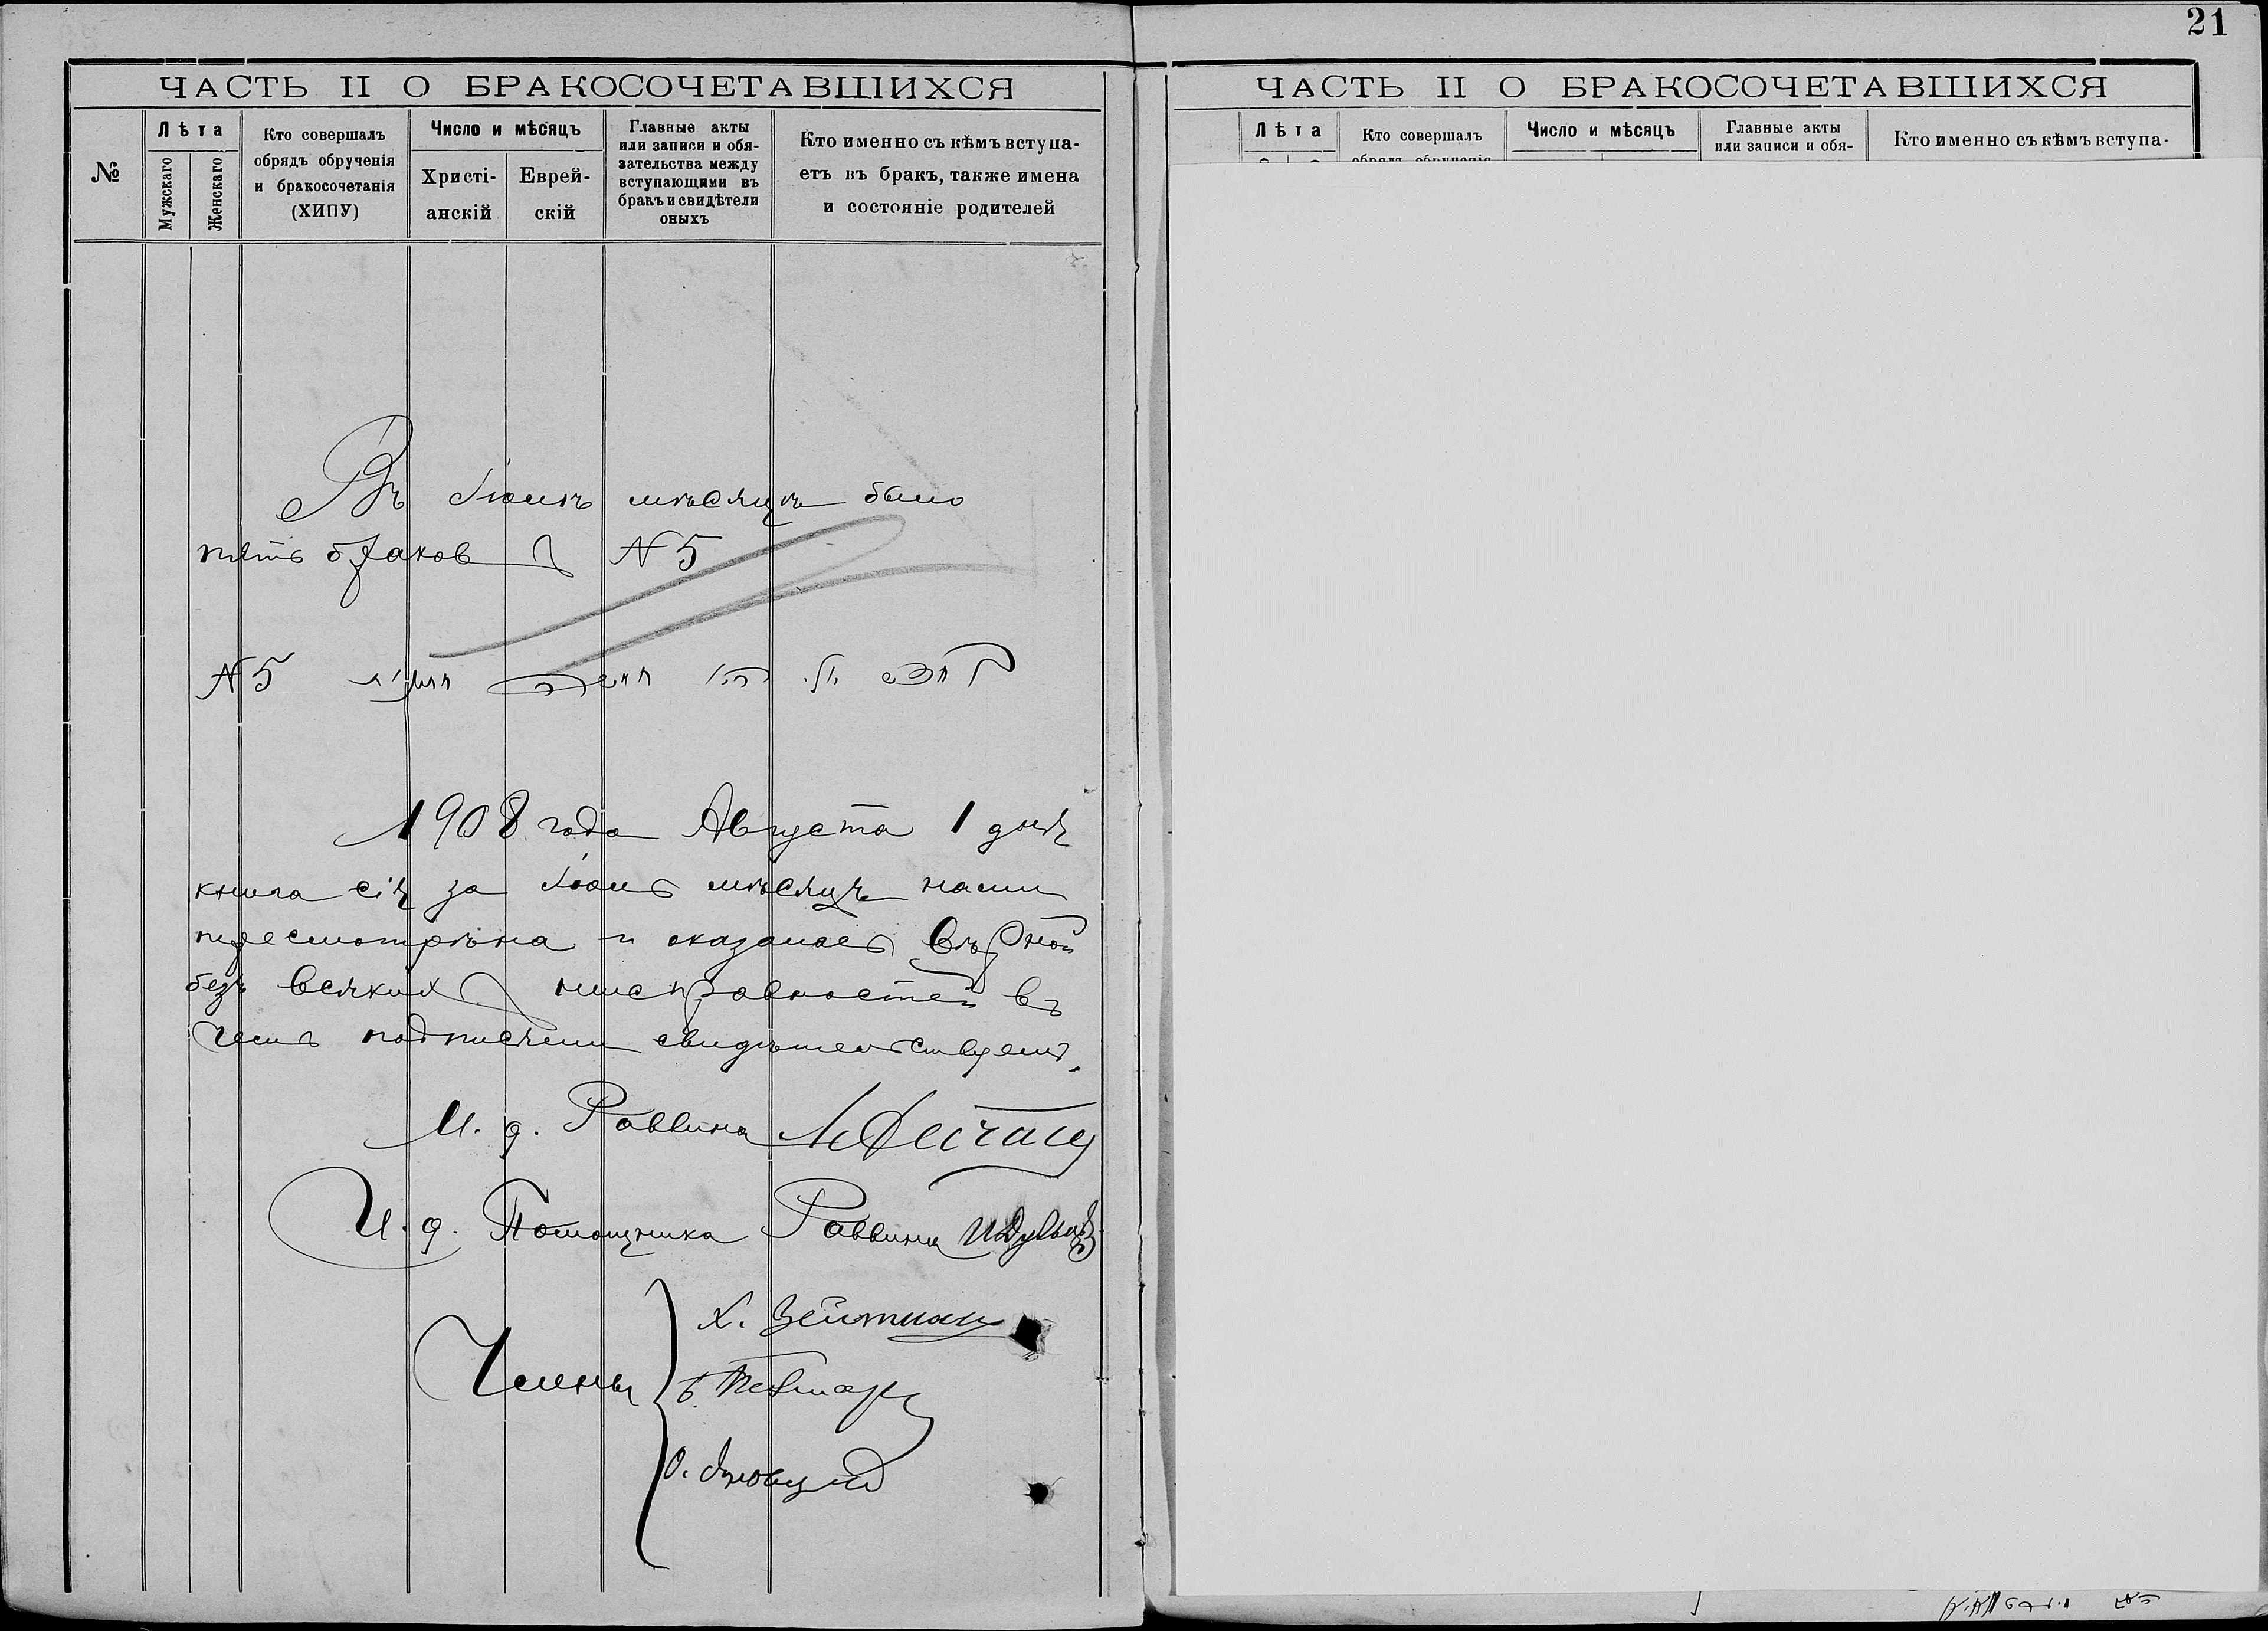 21
ЧАСТЬ II О БРАКОСОЧЕТАВШИХСЯ
№
Лѣта
Мужскаго
Женскаго
Кто совершалъ
обрядъ обрученія
и бракосочетанія
(ХИПУ)
Число и мѣсяцъ
Христі-
анскій
Еврей-
скій
Главные акты
или записи и обя-
зательства между
вступающими въ
бракъ и свидѣтели
оныхъ
Кто именно съ кѣмъ вступа-
етъ въ бракъ, также имена
и состояніе родителей
Въ Іюлѣ мѣсяцѣ было
пять браков N 5
N 5
1908 года Августа 1 дня
книга сія за Іюль мѣсяцъ нами
пересмотрѣна и оказалась вѣрной
безъ всяких неисправностей въ
чемъ подписями свидѣтельствуемъ.
И. д. Раввина
И. д. Помощника Раввина
Члены
Х. Зейтман
О.
ЧАСТЬ II О БРАКОСОЧЕТАВШИХСЯ
Лѣта
Кто совершалъ
обрядъ обрученія
Число и мѣсяцъ
Главные акты
или записи и обя-
Кто именно съ кѣмъ вступа-